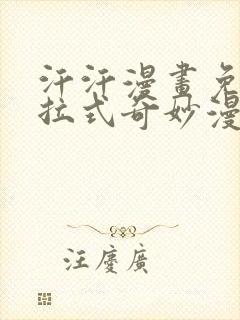 汗汗漫畫免
拉式奇妙漫
汪慶廣